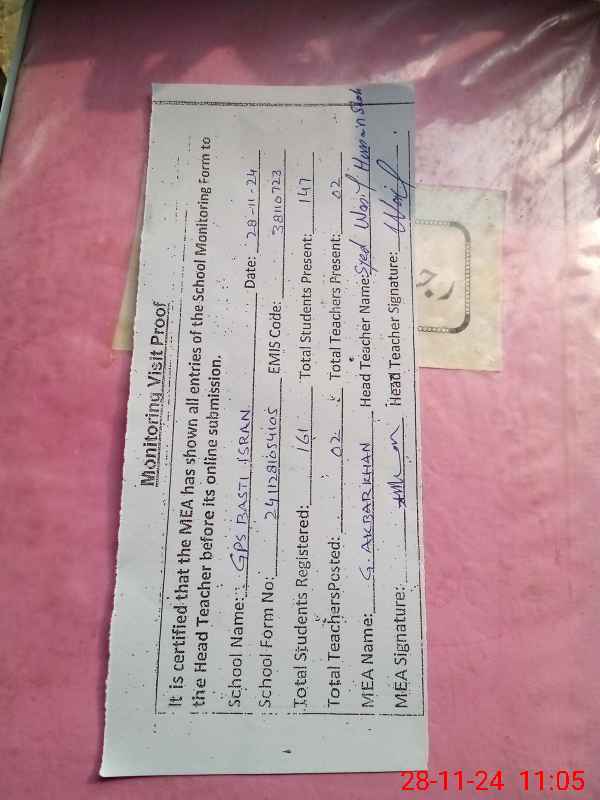 Monitoring Visit Proof
It is certified that the MEA has shown all entries of the School Monitoring Form to
the Head Teacher before its online submission.
School Name: GPS BASTI ISRAN Date: 28-11-24
School Form No: 2411281054105 EMIS Code: 38110723
Total Students Registered: 161 Total Students Present: 147
Total Teachers Posted: 02 Total Teachers Present: 02
MEA Name: G. AKBAR KHAN Head Teacher Name: Syed Wasif Hussain Shah
MEA Signature: Head Teacher Signature: Wasif
28-11-24 11:05